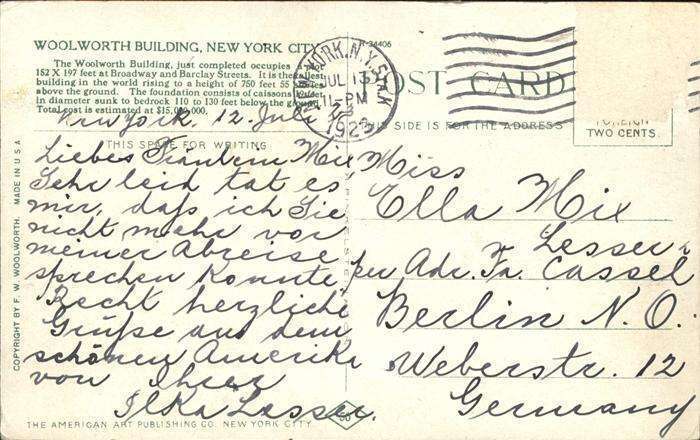 WOOLWORTH BUILDING, NEW YORK CITY
The Woolworth Building, just completed occupies a
152 X 197 feet at Broadway and Barclay Streets. It is the tallest
building in the world rising to a height of 750 feet 55
above the ground. The foundation consists of caissons
in diameter sunk to bedrock 110 to 130 feet below the ground.
Total cost is estimated at $15,000,000.
New York, 12. Juli
THIS SPACE FOR WRITING
Liebes Fräulein Mix,
Sehr leid tat es
mir, daß ich Sie
nicht mehr vor
meiner Abreise
sprechen konnte.
Recht herzliche
Grüße aus dem
schönen Amerika
von Ihrer
Ilka Lesser.
COPYRIGHT BY F. W. WOOLWORTH. MADE IN U.S.A
THE AMERICAN ART PUBLISHING CO. NEW YORK CITY
NEW YORK, N.Y. STA. K
JUL 13
11-PM
192
POST CARD
THIS SIDE IS FOR THE ADDRESS
FOREIGN
TWO CENTS.
Miss
Ella Mix
per Adr. Fa. Lesser &
Cassel
Berlin N. O.
Weberstr. 12
Germany